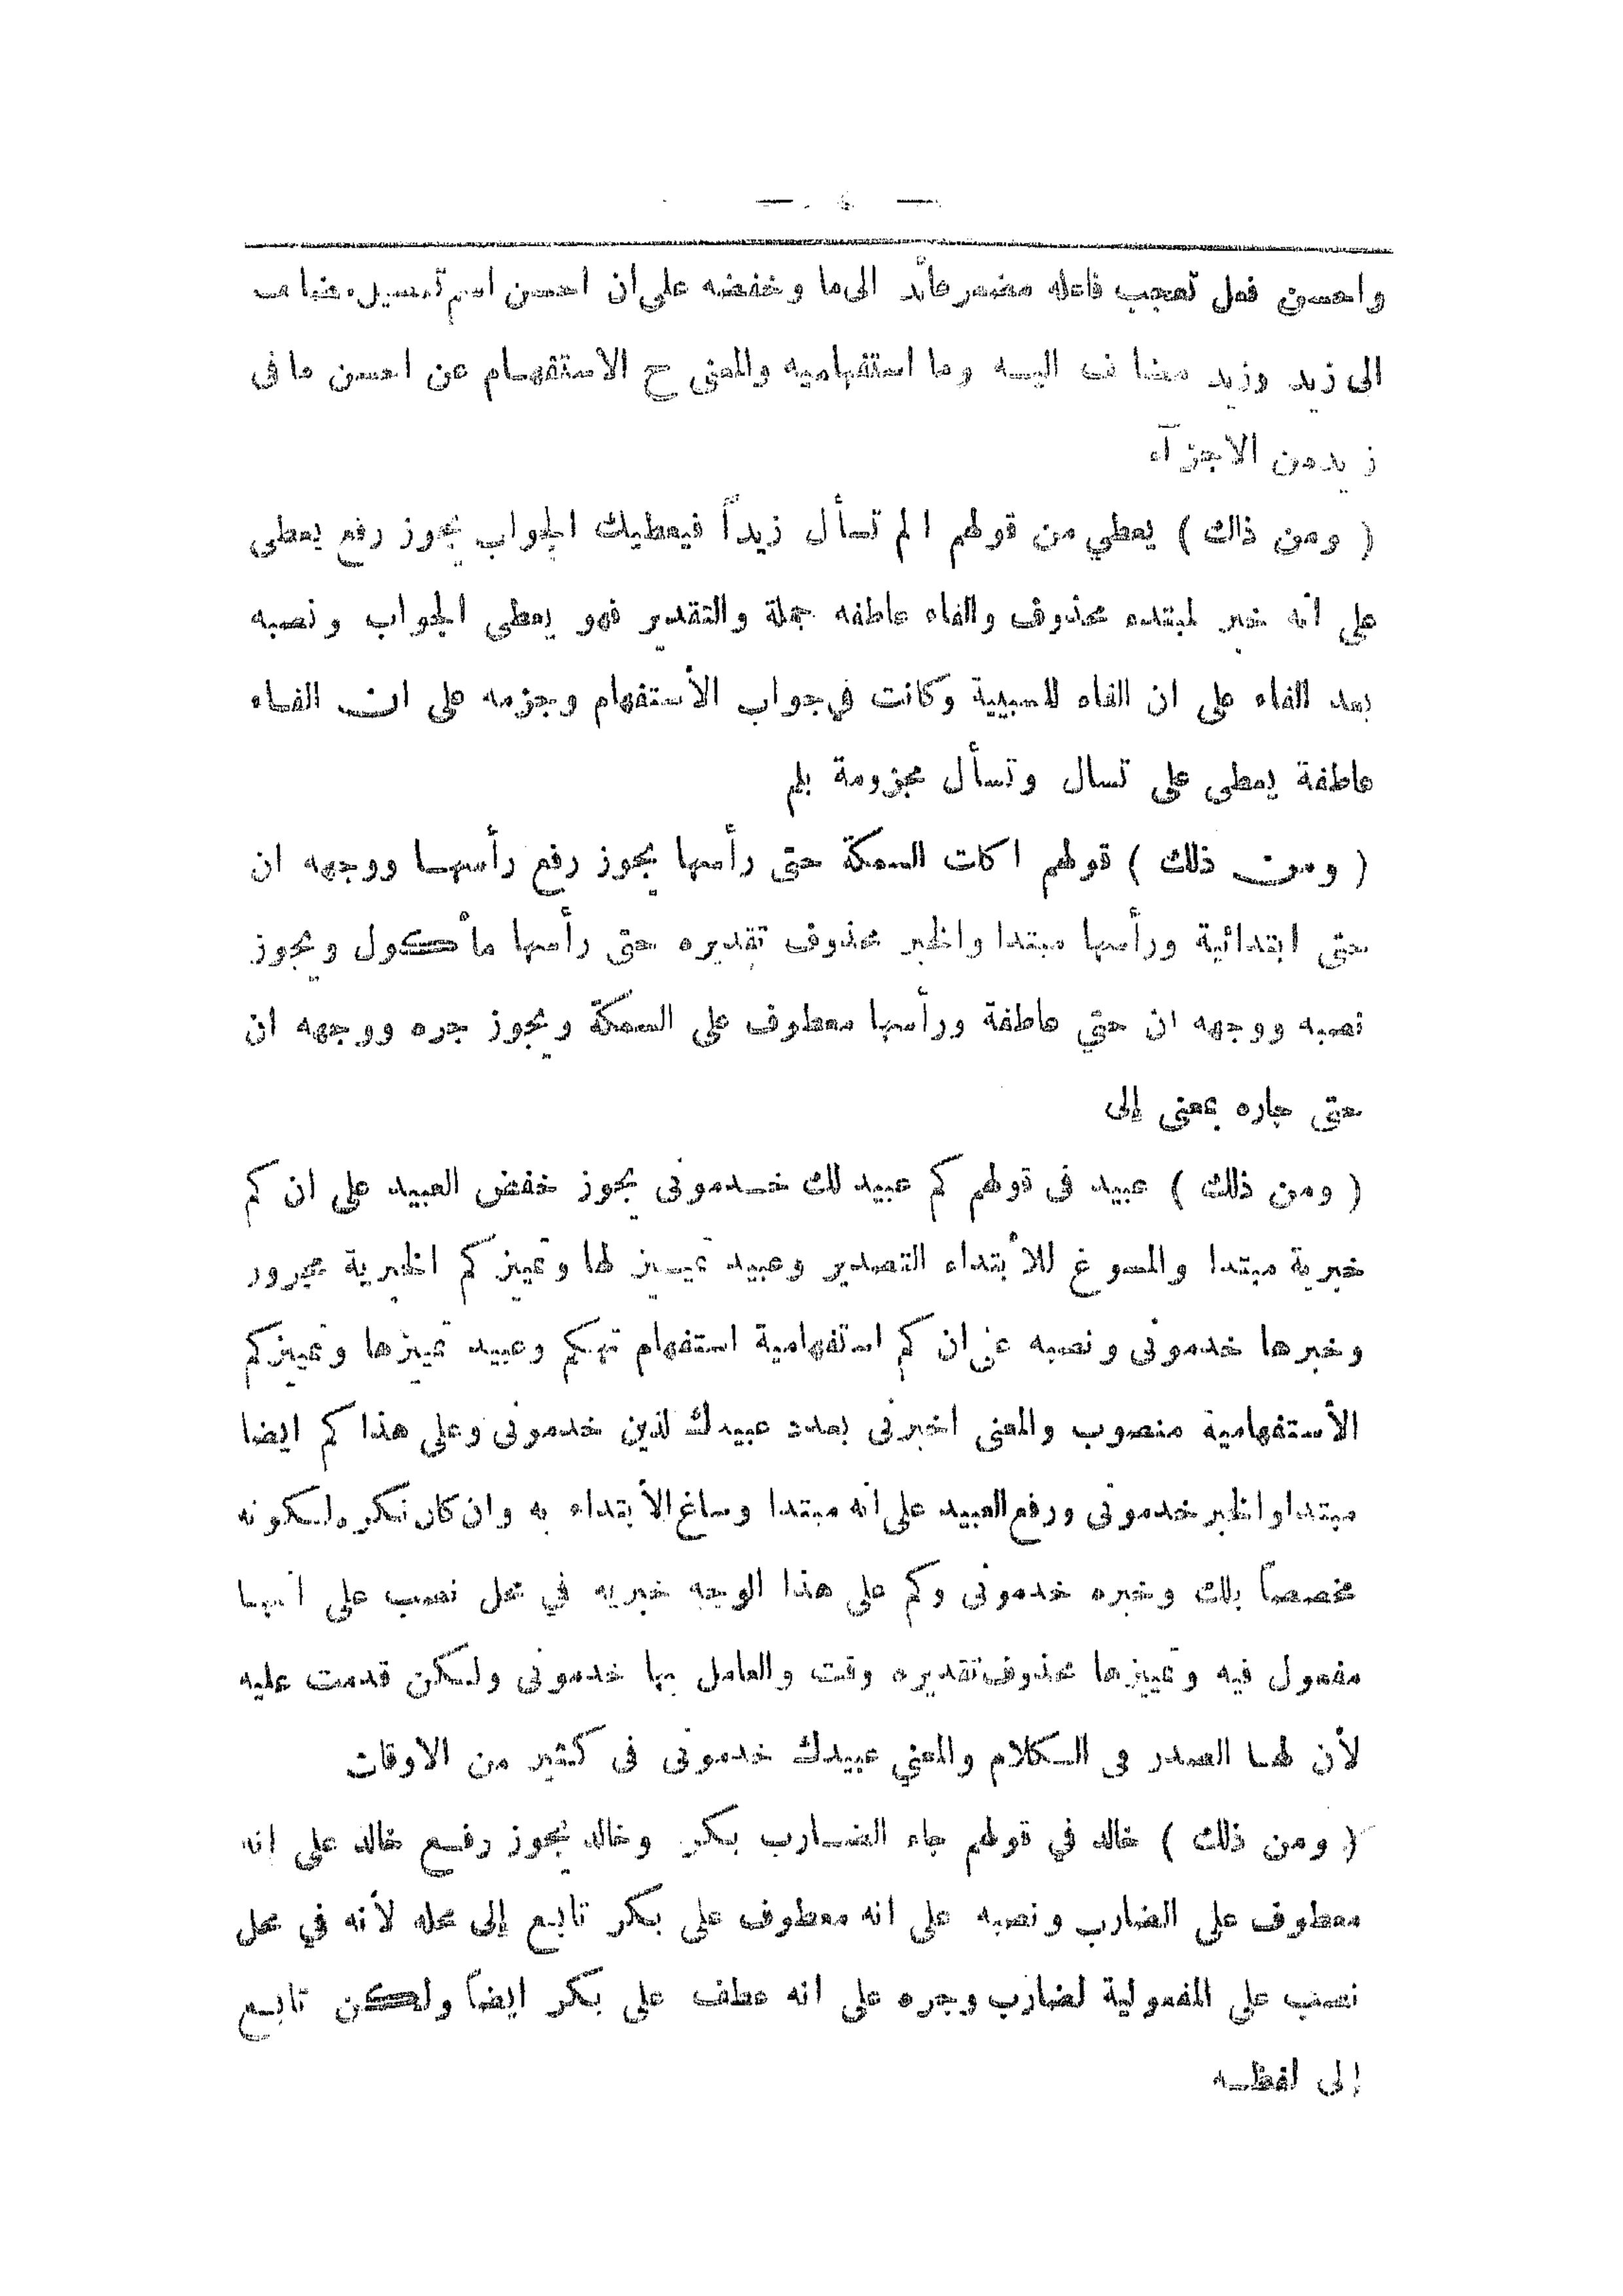 واحسن فعل تعجب فاعله مضمر عائد الى ما وخفضه على ان احسن اسم تفضيل مضاف
الى زيد وزيد مضاف اليه وما استفهاميه والمعنى ح الاستفهام عن احسن ما في
زيد من الاجزآء
( ومن ذلك ) يعطي من قولهم الم تسأل زيداً فيعطيك الجواب يجوز رفع يعطى
على انه خبر لمبتده محذوف والفاء عاطفه جملة والتقدير فهو يعطى الجواب ونصبه
بعد الفاء على ان الفاء للسببية وكانت في جواب الأستفهام وجزمه على ان الفاء
عاطفة يعطى على تسال وتسأل مجزومة بلم
( ومن ذلك ) قولهم اكلت السمكة حتى رأسها يجوز رفع رأسها ووجهه ان
حتى ابتدائية ورأسها مبتدا والخبر محذوف تقديره حتى رأسها مأكول ويجوز
نصبه ووجهه ان حتي عاطفة ورأسها معطوف على السمكة ويجوز جره ووجهه ان
حتى جاره بمعنى إلى
( ومن ذلك ) عبيد فى قولهم كم عبيد لك خدمونى يجوز خفض العبيد على ان كم
خبرية مبتدا والمسوغ للأبتداء التصدير وعبيد تمييز لها وتمييز كم الخبرية مجرور
وخبرها خدمونى ونصبه على ان كم استفهامية استفهام تهكم وعبيد تمييزها وتمييز كم
الأستفهامية منصوب والمعنى اخبرنى بعدد عبيدك لذين خدمونى وعلى هذا كم ايضا
مبتدا والخبر خدمونى ورفع العبيد على انه مبتدا وساغ الأبتداء به وان كان نكره لكونه
مخصصاً بلك وخبره خدمونى وكم على هذا الوجه خبريه في محل نصب على انها
مفعول فيه وتمييزها محذوف تقديره وقت والعامل بها خدمونى ولكن قدمت عليه
لأن لها الصدر فى الكلام والمعني عبيدك خدمونى فى كثير من الاوقات
( ومن ذلك ) خالد في قولهم جاء الضارب بكر وخالد يجوز رفع خالد على انه
معطوف على الضارب ونصبه على انه معطوف على بكر تابع إلى محله لأنه في محل
نصب على المفعولية لضارب وجره على انه عطف على بكر ايضاً ولكن تابع
إلى لفظه